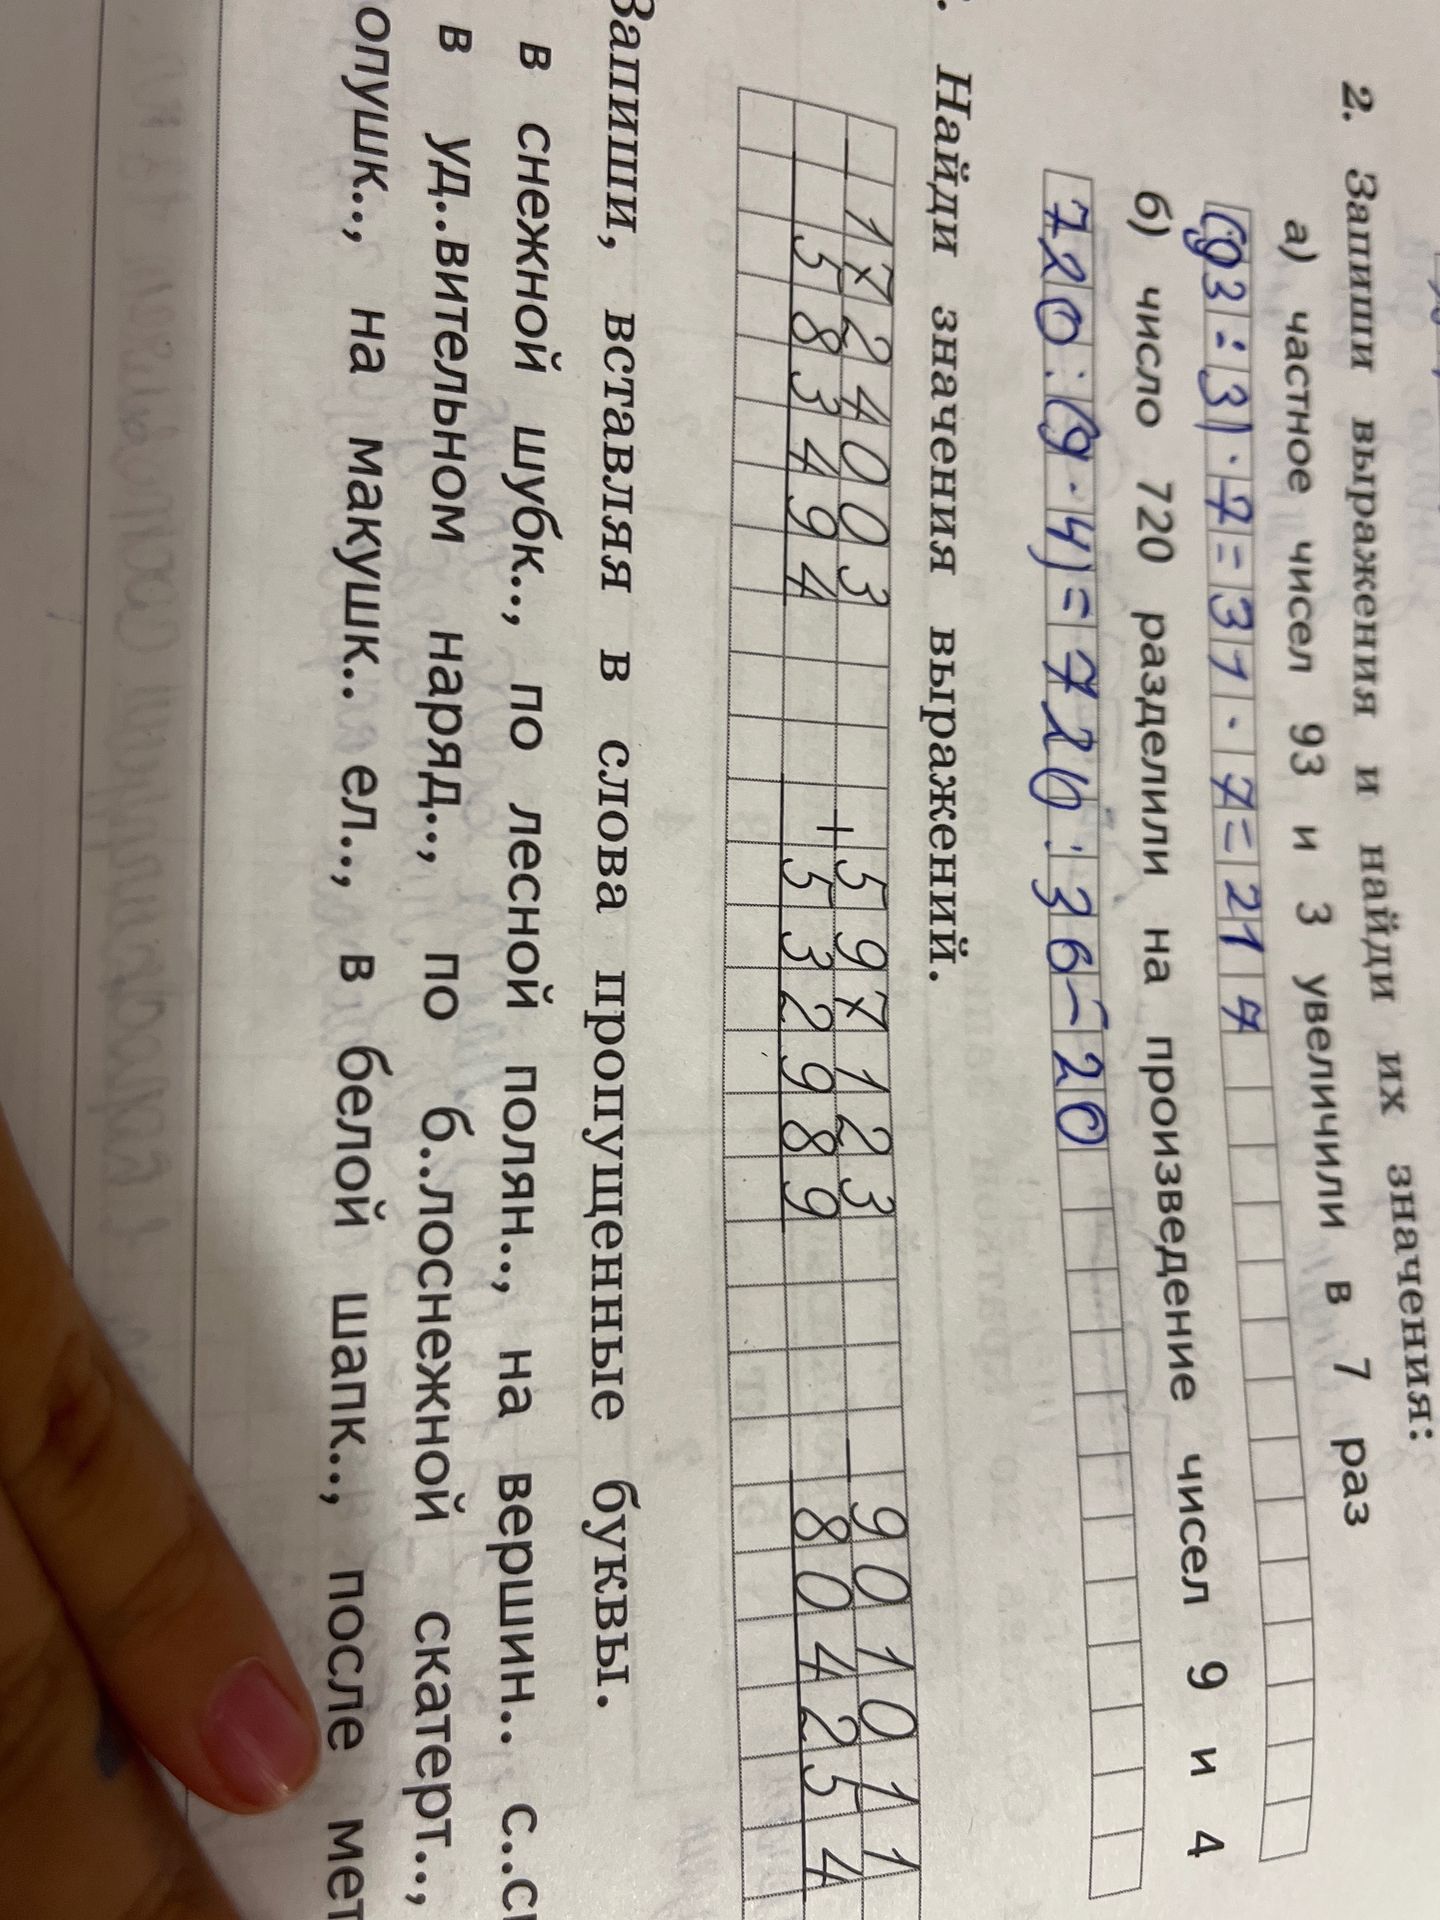 2. Запиши выражения и найди их значения:
а) частное чисел 93 и 3 увеличили в 7 раз
(93:3)·7=31·7=217
б) число 720 разделили на произведение чисел 9 и 4
720:(9·4)=720:36=20
Найди значения выражений.
− 1724003 + 597123 − 901011
583494 532989 804254
Запиши, вставляя в слова пропущенные буквы.
в снежной шубк.., по лесной полян.., на вершин.. с..сн
в уд..вительном наряд.., по б..лоснежной скатерт..,
опушк.., на макушк.. ел.., в белой шапк.., после мет